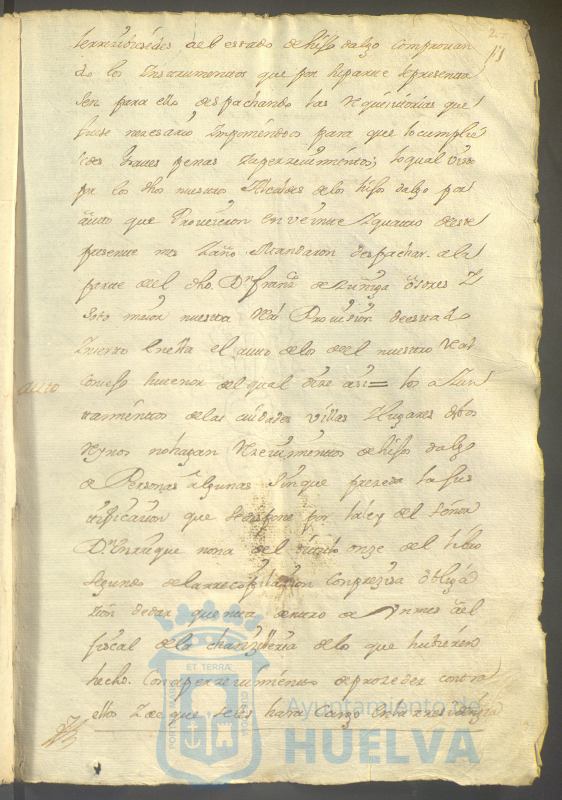 2
del estado de hijo dalgo comprovan
do los Instrumentos que por su parte se presenta
sen para ello, despachando las Requisitorias que
fuese nezesario Imponiendo para que lo cumplie
graves penas y apercevimientos; lo qual visto
por los dhos nuestros Alcaldes de los hijos dalgo por
auto que Proveieron en veinte y quatro deste
presente mes y año Mandaron despachar a la
parte del dho. Dn. franco. de Zuñiga
Soto maior nuestra Real Provision
Inserto en ella el auto de los del nuestro Real
auto
Consejo su tenor del qual dize asi = los Aiun
tamientos de las ciudades villas y lugares destos
Reynos no hagan Rezevimientos de hijos dalgo
de Personas algunas sin que preceda la jus
tificacion que se dispone por la ley del señor
Dn. Enrrique nona del titulo onze del libro
segundo de la rrecopilazion con prezisa obliga
zion de dar quenta dentro de Un mes al
fiscal de la chanzilleria de lo que hubieren
hecho. Con apercevimiento de proceder contra
ellos y de que se les hara cargo en la rresidenzia
PORTUS MARIS ET TERRÆ CUSTODIA
Ayuntamiento de
HUELVA